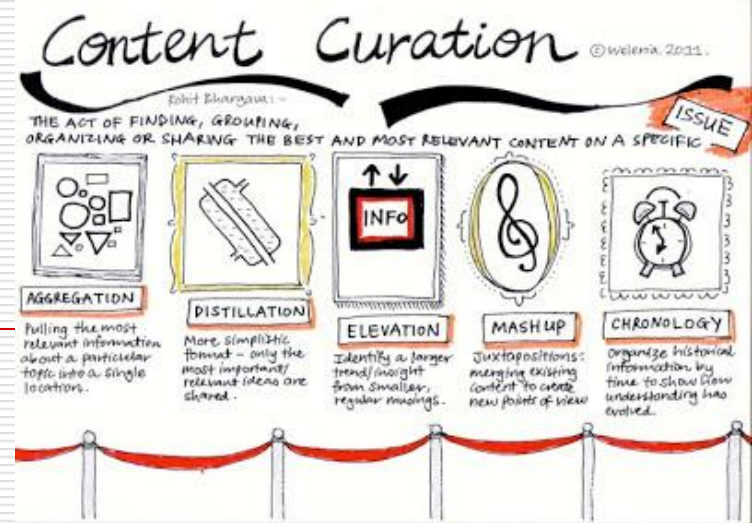 Content Curation © Welenia. 2011.
Rohit Bhargava: -
THE ACT OF FINDING, GROUPING,
ORGANIZING OR SHARING THE BEST AND MOST RELEVANT CONTENT ON A SPECIFIC
ISSUE
INFO
AGGREGATION
Pulling the most
relevant information
about a particular
topic into a single
location.
DISTILLATION
More simplistic
format - only the
most important/
relevant ideas are
shared.
ELEVATION
Identify a larger
trend/insight
from smaller,
regular musings.
MASHUP
Juxtapositions:
merging existing
content to create
new points of view
CHRONOLOGY
Organize historical
information by
time to show how
understanding has
evolved.